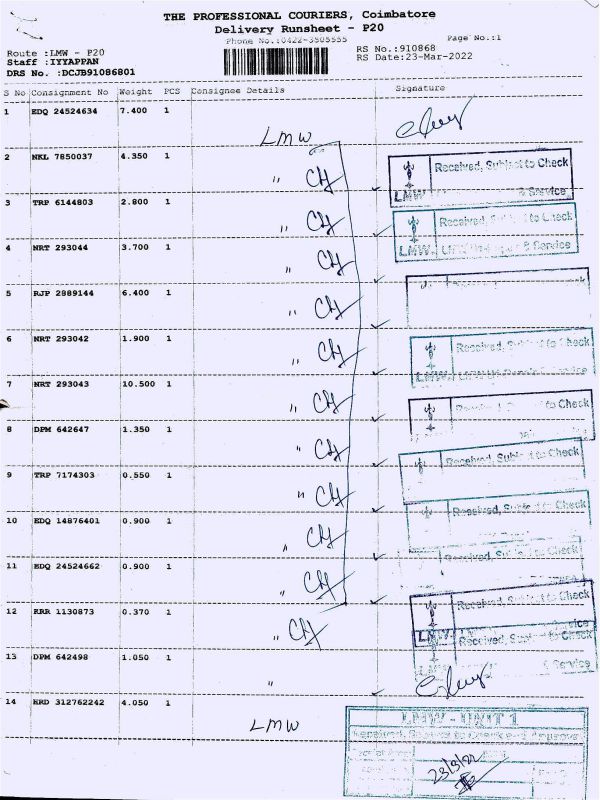 THE PROFESSIONAL COURIERS, Coimbatore
Delivery Runsheet - P20
Phone No.:0422-3505555
Page No.:1
Route :LMW - P20
RS No.:910868
Staff :IYYAPPAN
RS Date:23-Mar-2022
DRS No. :DCJB91086801
S No Consignment No Weight PCS Consignee Details Signature
1 EDQ 24524634 7.400 1
LMW
2 NKL 7850037 4.350 1
Received, Subject to Check
LMW & Service
3 TRP 6144803 2.800 1
Received, Subject to Check
LMW & Service
4 NRT 293044 3.700 1
5 RJP 2889144 6.400 1
6 NRT 293042 1.900 1
Received, to Check
LMW Service
7 NRT 293043 10.500 1
to Check
8 DPM 642647 1.350 1
Received, to Check
9 TRP 7174303 0.550 1
Received, to Check
10 EDQ 14876401 0.900 1
to Check
11 EDQ 24524662 0.900 1
Received, to Check
12 RRR 1130873 0.370 1
Received, to Check
13 DPM 642498 1.050 1
& Service
14 HRD 312762242 4.050 1
LMW
LMW - UNIT 1
23/3/22